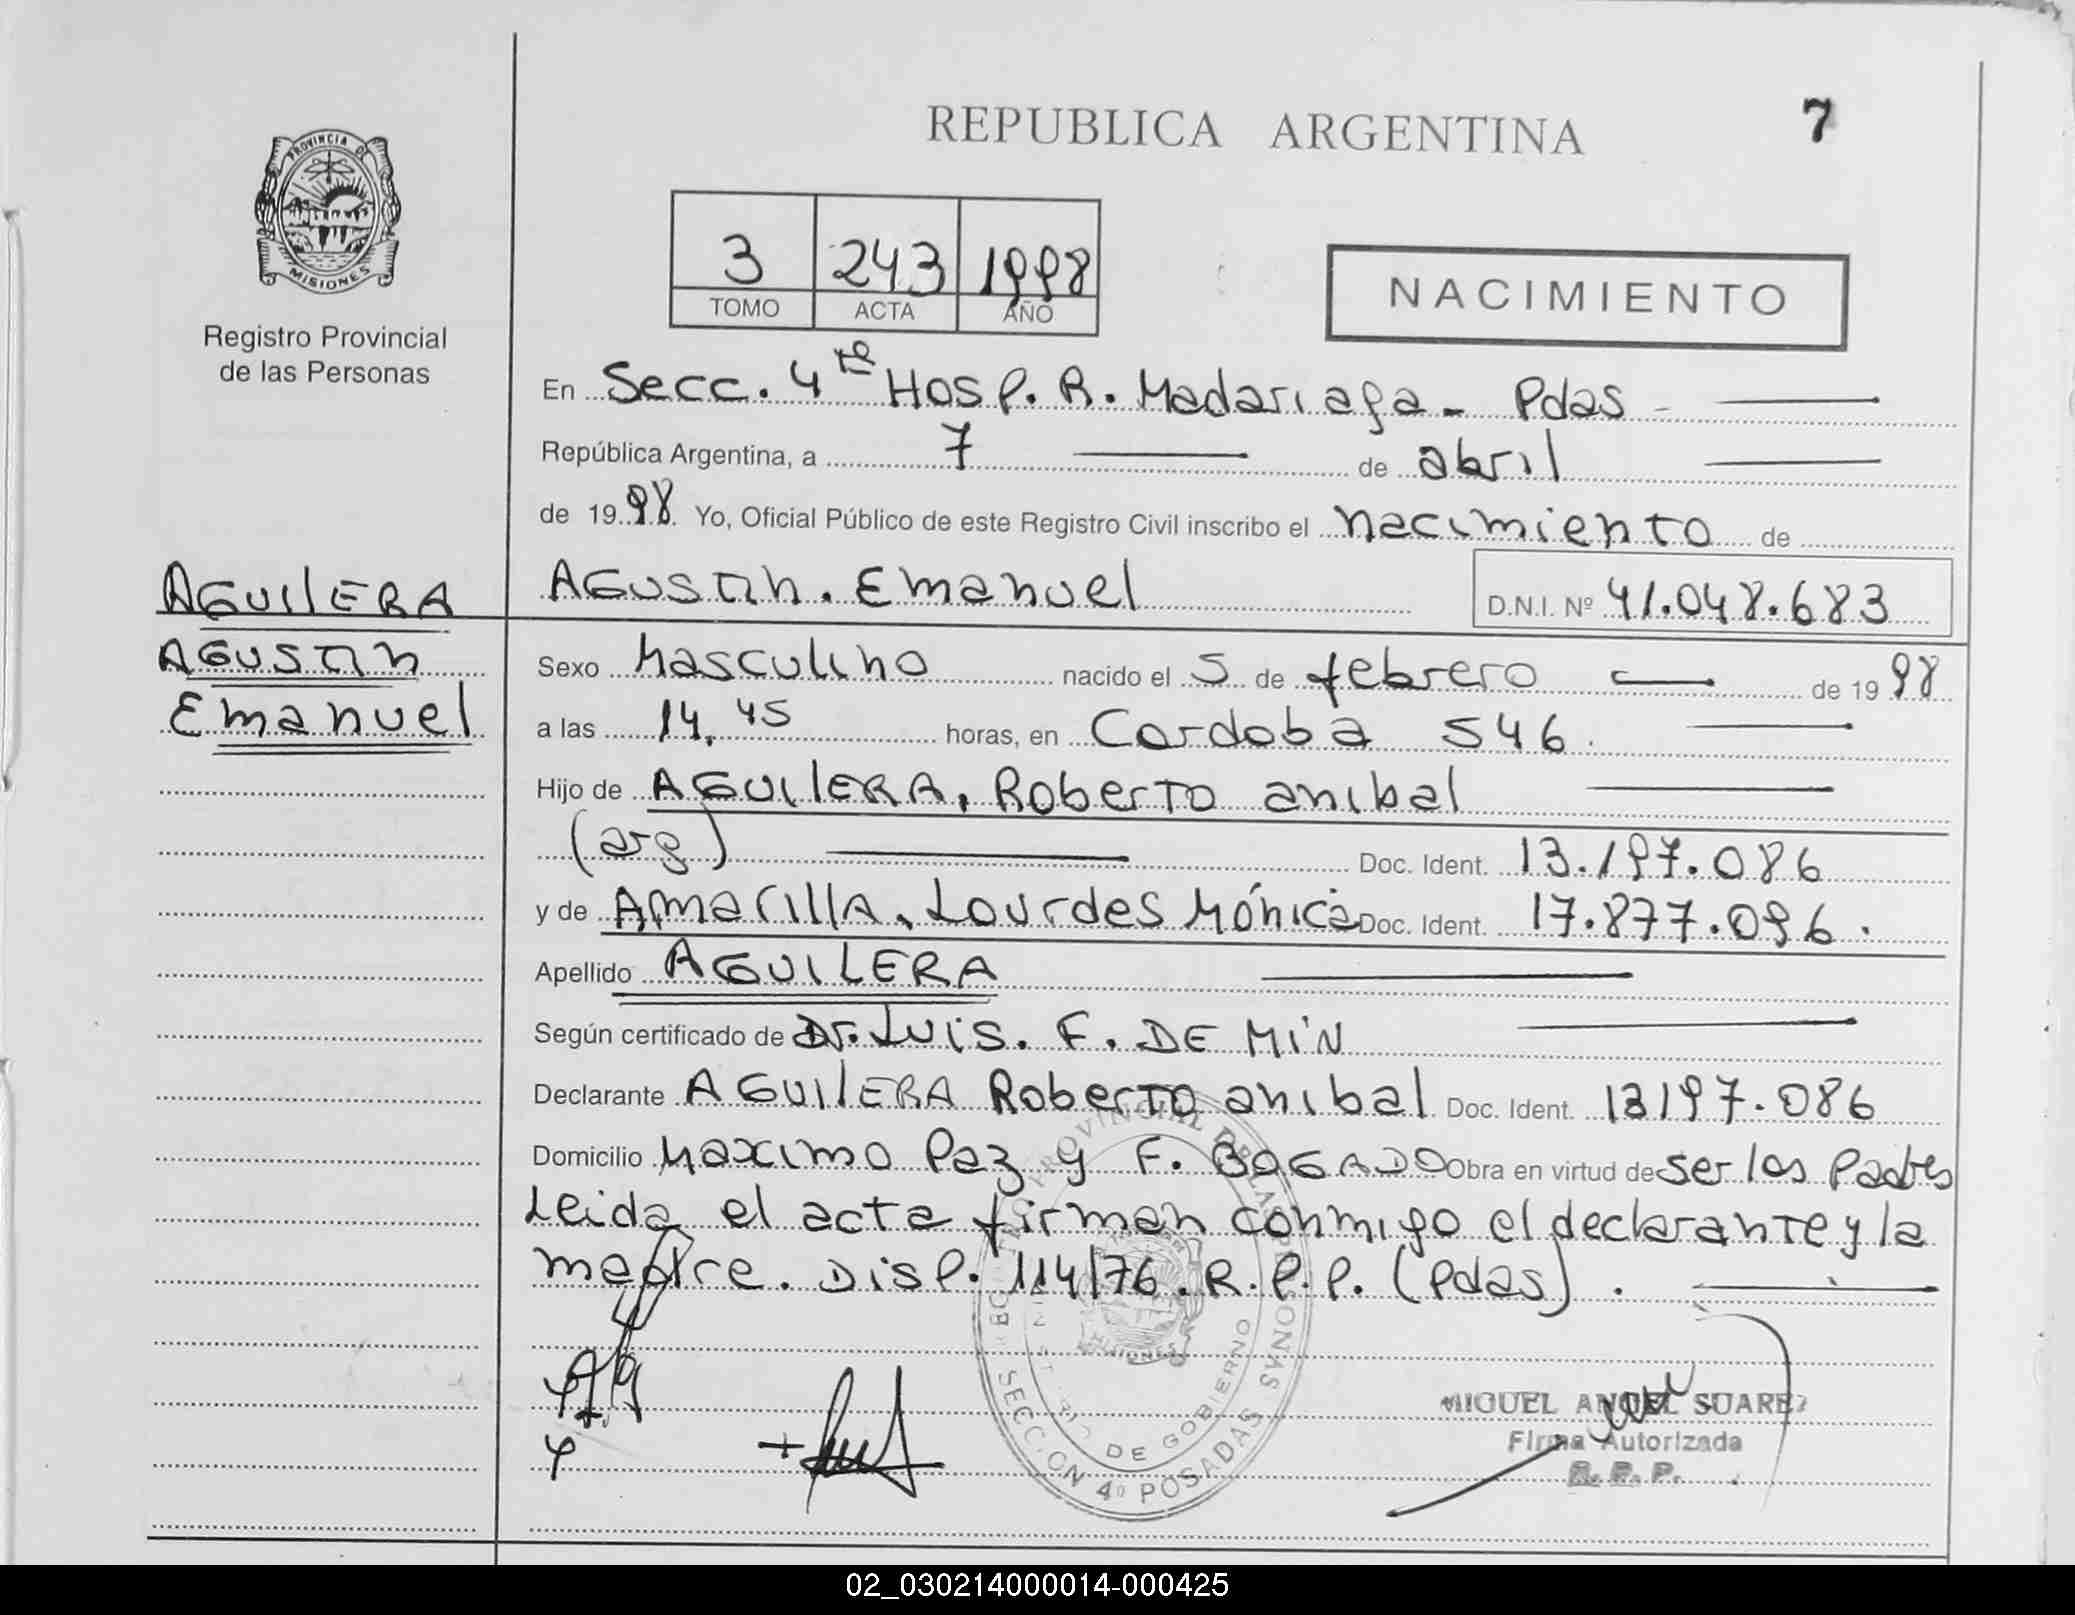 REPUBLICA ARGENTINA
7
PROVINCIA DE
MISIONES
Registro Provincial
de las Personas
3 243 1998
TOMO ACTA AÑO
NACIMIENTO
En Secc. 4ta Hosp. R. Madariaga - Pdas -
República Argentina, a 7 de abril
de 1998 Yo, Oficial Público de este Registro Civil inscribo el nacimiento de
AGUSTIN. Emanuel D.N.I. Nº 41.048.683
AGUILERA
AGUSTIN
Emanuel
Sexo Masculino nacido el 5 de febrero de 1998
a las 14,45 horas, en Cordoba 546.
Hijo de AGUILERA, Roberto anibal
(arg) Doc. Ident. 13.197.086
y de Amarilla, Lourdes Mónica Doc. Ident. 17.877.096.
Apellido AGUILERA
Según certificado de Dr. Luis. F. DE MIN
Declarante AGUILERA Roberto anibal Doc. Ident. 13197.086
Domicilio Maximo Paz y F. BOGADO Obra en virtud de ser los Padres
Leida el acta firman conmigo el declarante y la
madre. Disp. 114/76. R.P.P. (Pdas).
PROVINCIAL DE LAS PERSONAS
MISIONES
DE GOBIERNO
SECCION 4º POSADAS
MIGUEL ANGEL SUAREZ
Firma Autorizada
R. P. P.
02_030214000014-000425